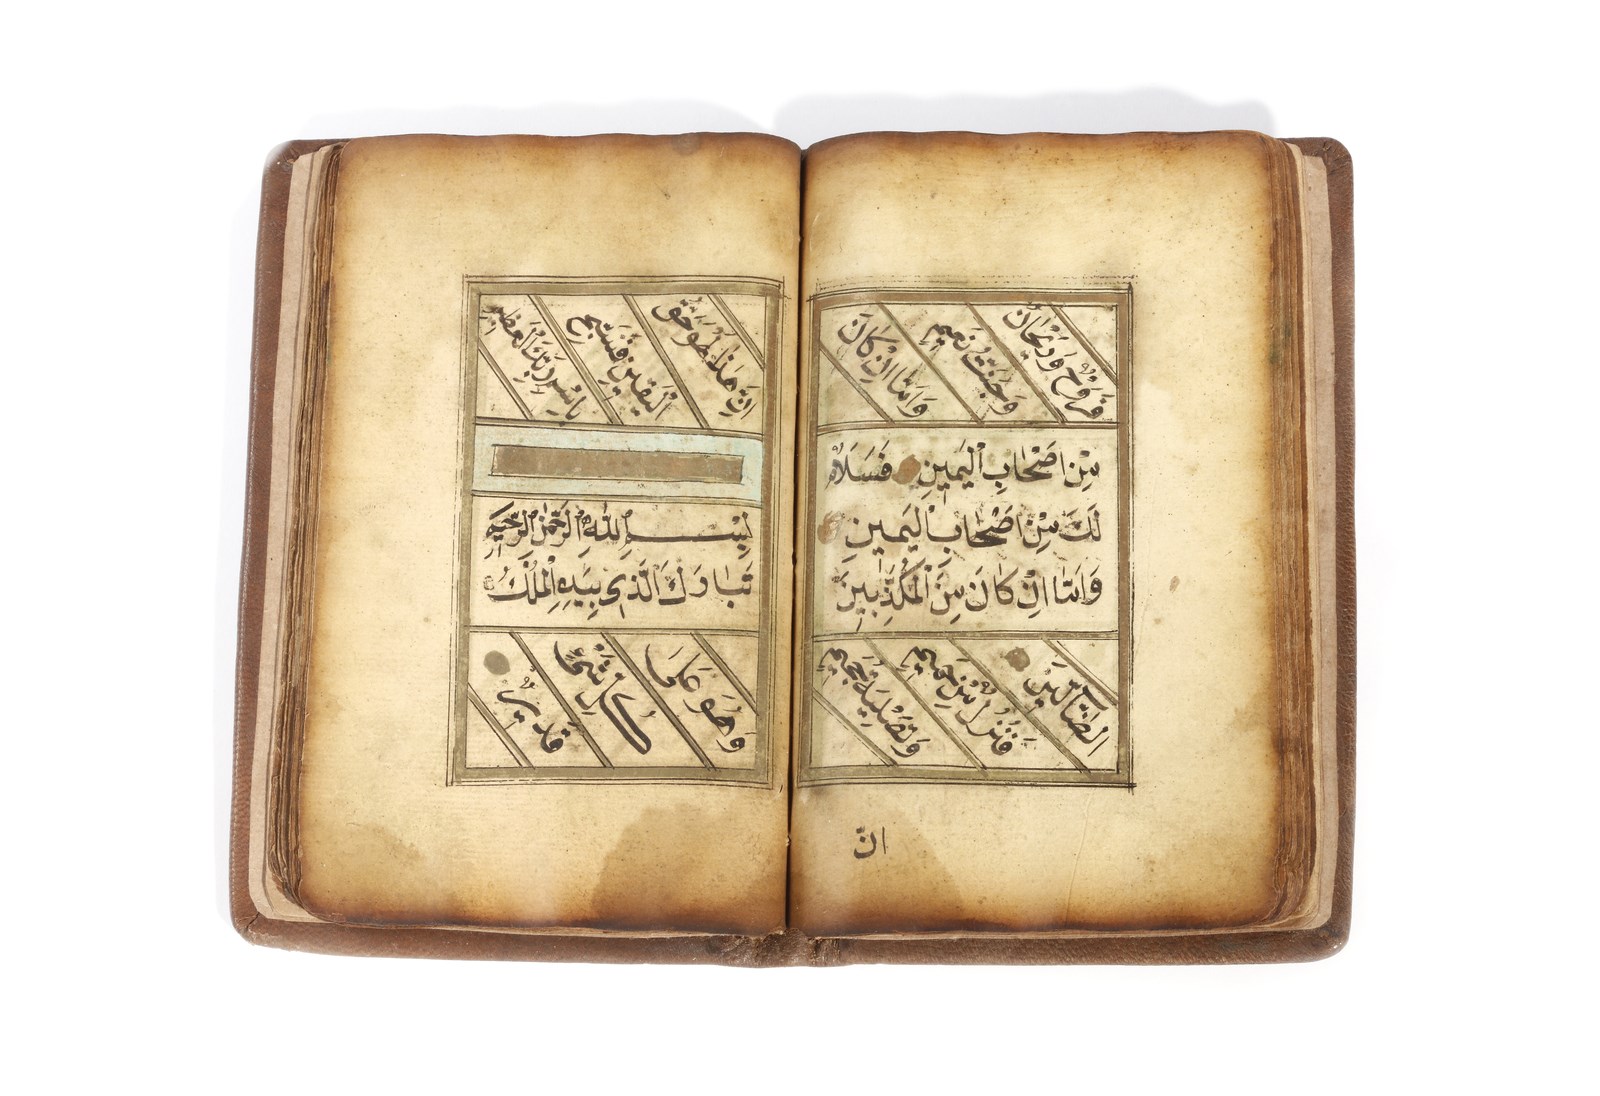 فَرَوْحٌ وَرَيْحَانٌ
وَجَنَّتُ نَعِيمٍ
وَاَمَّا اِنْ كَانَ
مِنْ اَصْحَابِ الْيَمِينِ فَسَلَامٌ
لَكَ مِنْ اَصْحَابِ الْيَمِينِ
وَاَمَّا اِنْ كَانَ مِنَ الْمُكَذِّبِينَ
الضَّالِّينَ
فَنُزُلٌ مِنْ حَمِيمٍ
وَتَصْلِيَةُ جَحِيمٍ
اِنَّ
اِنَّ هٰذَا لَهُوَ حَقُّ
الْيَقِينِ فَسَبِّحْ
بِاسْمِ رَبِّكَ الْعَظِيمِ
بِسْمِ اللّٰهِ الرَّحْمٰنِ الرَّحِيمِ
تَبَارَكَ الَّذِى بِيَدِهِ الْمُلْكُ
وَهُوَ عَلٰى
كُلِّ شَىْءٍ
قَدِيرٌ